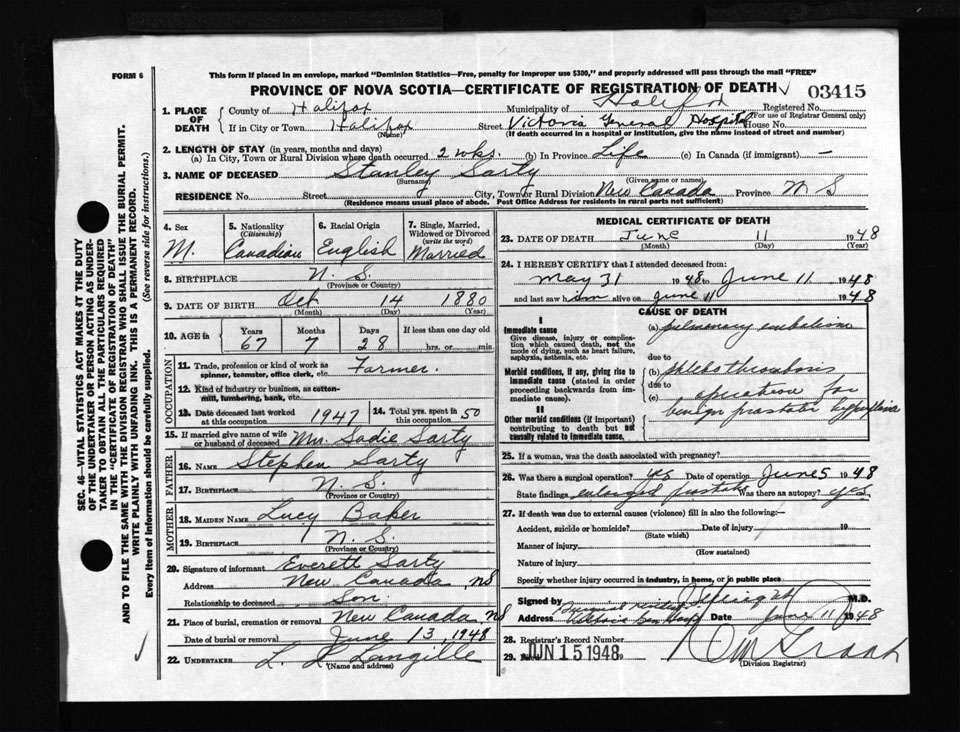 FORM 6
This form if placed in an envelope, marked "Dominion Statistics—Free, penalty for improper use $300," and properly addressed will pass through the mail "FREE"
PROVINCE OF NOVA SCOTIA—CERTIFICATE OF REGISTRATION OF DEATH
03415
1. PLACE OF DEATH
County of Halifax
Municipality of Halifax
Registered No.
(For use of Registrar General only)
If in City or Town Halifax
(Name)
Street Victoria General Hospital House No.
(If death occurred in a hospital or institution, give the name instead of street and number)
2. LENGTH OF STAY (in years, months and days)
(a) In City, Town or Rural Division where death occurred 2 wks. (b) In Province Life (c) In Canada (if immigrant) —
3. NAME OF DECEASED Stanley Sarty
(Surname) (Given name or names)
RESIDENCE No. Street City, Town or Rural Division New Canada Province N S
(Residence means usual place of abode. Post Office Address for residents in rural parts not sufficient)
4. Sex
M.
5. Nationality
(Citizenship)
Canadian
6. Racial Origin
English
7. Single, Married, Widowed or Divorced
(write the word)
Married
8. BIRTHPLACE N. S.
(Province or Country)
9. DATE OF BIRTH Oct 14 1880
(Month) (Day) (Year)
10. AGE in
Years Months Days If less than one day old
67 7 28 hrs. or min.
OCCUPATION
11. Trade, profession or kind of work as spinner, teamster, office clerk, etc. Farmer.
12. Kind of industry or business, as cotton-mill, lumbering, bank, etc.
13. Date deceased last worked at this occupation 1947
14. Total yrs. spent in this occupation 50
15. If married give name of wife or husband of deceased Mrs. Sadie Sarty
FATHER
16. NAME Stephen Sarty
17. BIRTHPLACE N. S.
(Province or Country)
MOTHER
18. MAIDEN NAME Lucy Baker
19. BIRTHPLACE N. S.
(Province or Country)
20. Signature of informant Everett Sarty
Address New Canada, NS
Relationship to deceased Son.
21. Place of burial, cremation or removal New Canada, NS
Date of burial or removal June 13, 1948
22. UNDERTAKER L. L Langille
(Name and address)
MEDICAL CERTIFICATE OF DEATH
23. DATE OF DEATH June 11 1948
(Month) (Day) (Year)
24. I HEREBY CERTIFY that I attended deceased from:
May 31 1948 to June 11 1948
and last saw him alive on June 11 1948
CAUSE OF DEATH
I
Immediate cause
Give disease, injury or complication which caused death, not the mode of dying, such as heart failure, asphyxia, asthenia, etc.
(a) pulmonary embolism
due to
Morbid conditions, if any, giving rise to immediate cause (stated in order proceeding backwards from immediate cause).
(b) phlebothrombosis
due to
(c) operation for
benign prostatic hyperplasia
II
Other morbid conditions (if important) contributing to death but not causally related to immediate cause.
25. If a woman, was the death associated with pregnancy?
26. Was there a surgical operation? yes Date of operation June 5 1948
State findings enlarged prostate Was there an autopsy? yes
27. If death was due to external causes (violence) fill in also the following:—
Accident, suicide or homicide? Date of injury 19
(State which)
Manner of injury
(How sustained)
Nature of injury
Specify whether injury occurred in industry, in home, or in public place
Signed by M.D.
Address Victoria Gen Hosp Date June 11 1948
28. Registrar's Record Number
29. JUN 15 1948 9
(Division Registrar)
SEC. 46—VITAL STATISTICS ACT MAKES IT THE DUTY OF THE UNDERTAKER OR PERSON ACTING AS UNDERTAKER TO OBTAIN ALL THE PARTICULARS REQUIRED IN THE "CERTIFICATE OF REGISTRATION OF DEATH" AND TO FILE THE SAME WITH THE DIVISION REGISTRAR WHO SHALL ISSUE THE BURIAL PERMIT.
WRITE PLAINLY WITH UNFADING INK. THIS IS A PERMANENT RECORD.
Every item of information should be carefully supplied. (See reverse side for instructions.)